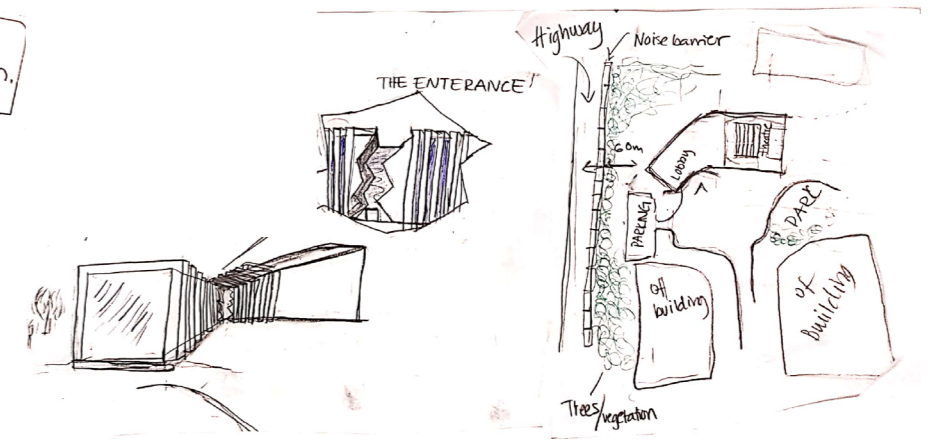 THE ENTERANCE!
Highway
Noise barrier
60m
Lobby
theatre
PARKING
PARK
off
building
of
Building
Trees/vegetation